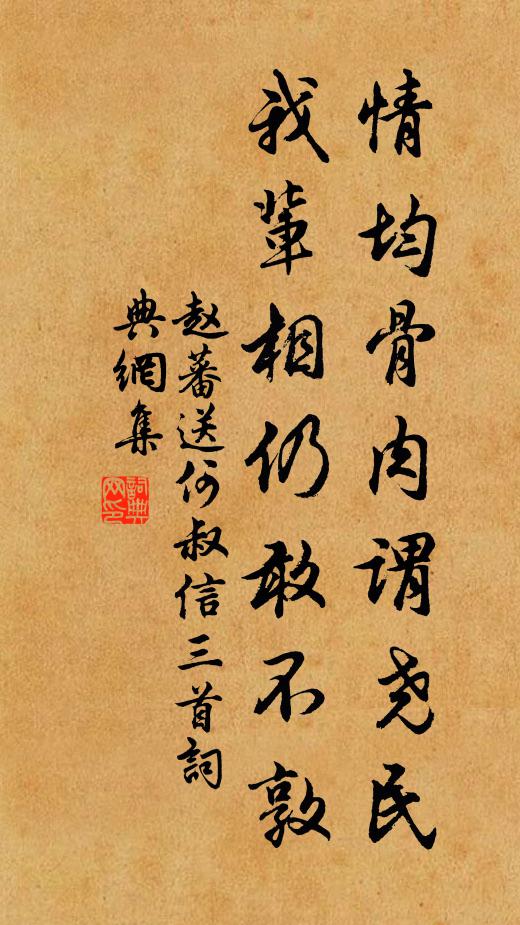 情均骨肉谓尧民
我辈相仍敢不敦
赵蕃送何叔信三首詞
典網集
詞典网印